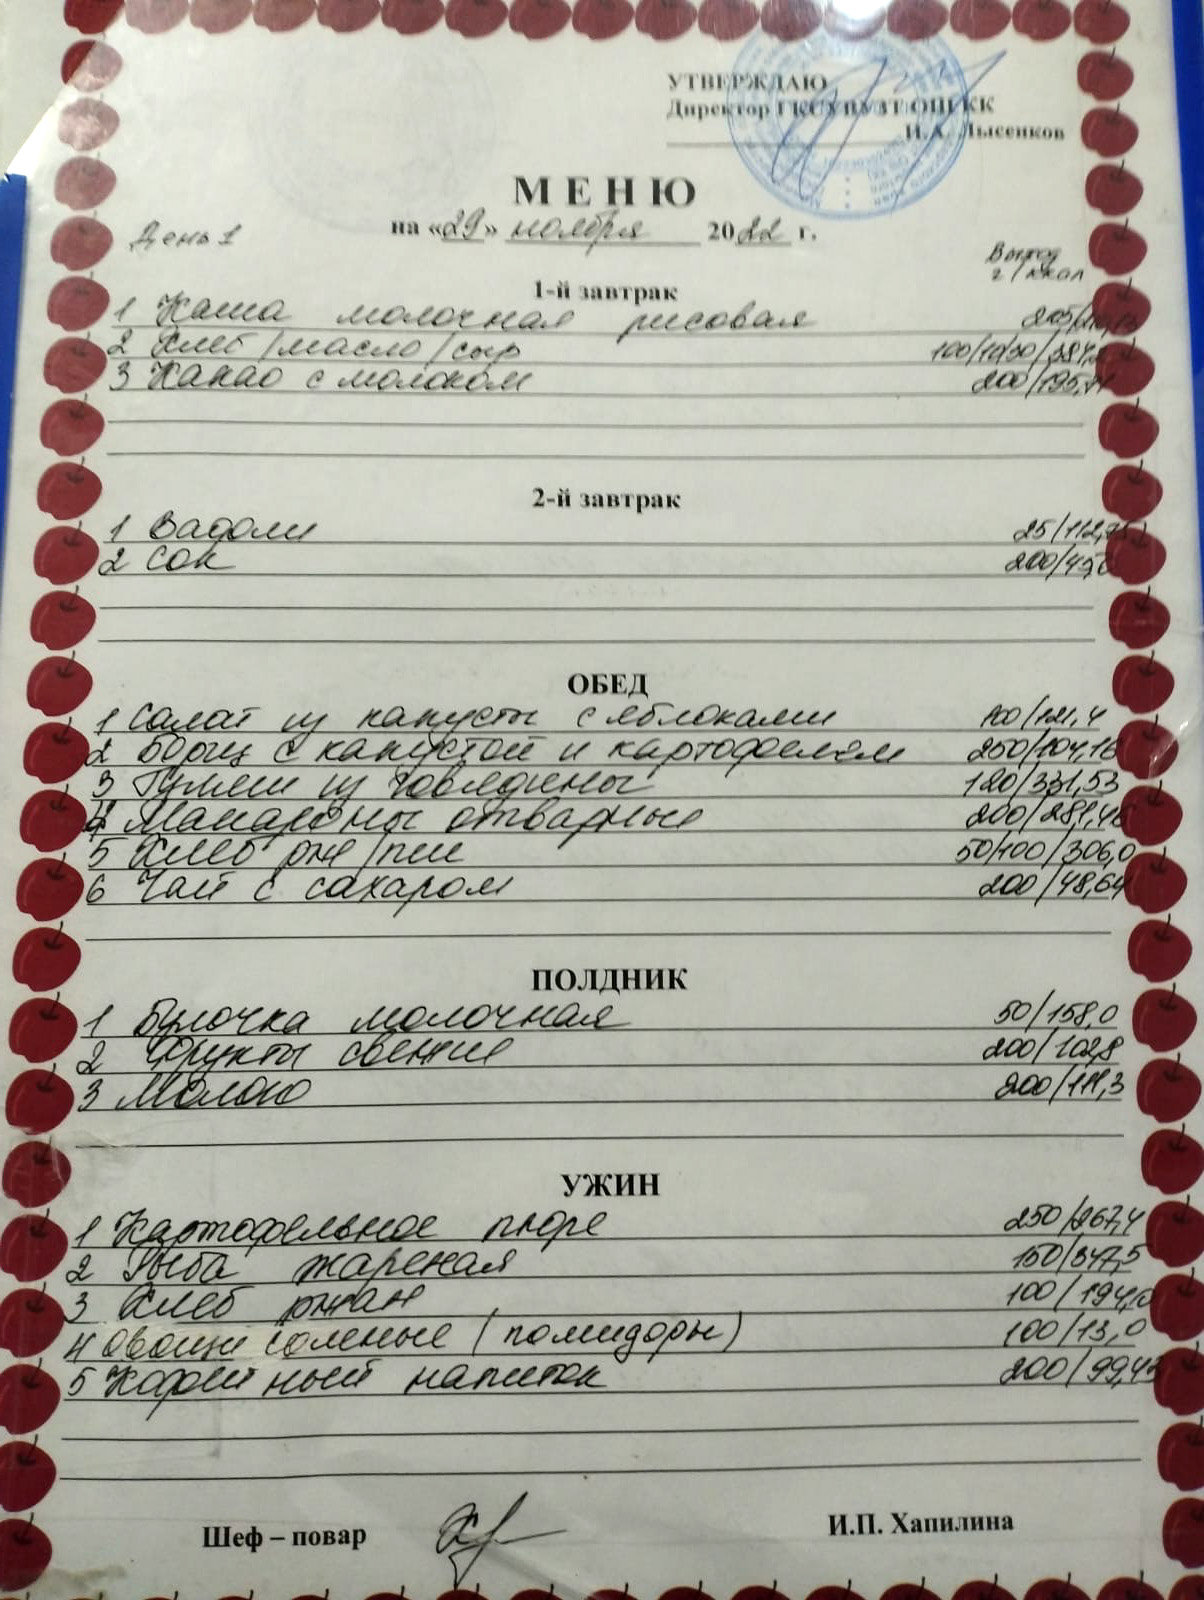 УТВЕРЖДАЮ
Директор ГКСУВУЗТ ОШ КК
И.А. Лысенков
МЕНЮ
День 1 на «29» ноября 2022 г.
Выход
г/ккал
1-й завтрак
1 Каша молочная рисовая
2 Хлеб/масло/сыр
3 Какао с молоком
2-й завтрак
1 Вафли
2 Сок
ОБЕД
1 Салат из капусты с яблоками 100/121,4
2 Борщ с капустой и картофелем 250/104,16
3 Гуляш из говядины 120/331,53
4 Макароны отварные 200/281,46
5 Хлеб рж/пш 50/100/306,0
6 Чай с сахаром 200/48,64
ПОЛДНИК
1 Булочка молочная 50/158,0
2 Фрукты свежие 200/102,8
3 Молоко 200/111,3
УЖИН
1 Картофельное пюре 250/267,4
2 Рыба жареная 150/347,5
3 Хлеб ржан 100/194,0
4 Овощи соленые (помидоры) 100/13,0
5 Кофейный напиток
Шеф – повар И.П. Хапилина